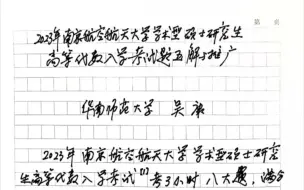 第 页
2023年南京航空航天大学学术型硕士研究生
高等代数入学考试题五解与推广
华南师范大学 吴康
2023年南京航空航天大学学术型硕士研究
生高等代数入学考试[1]考3小时八大题，满分